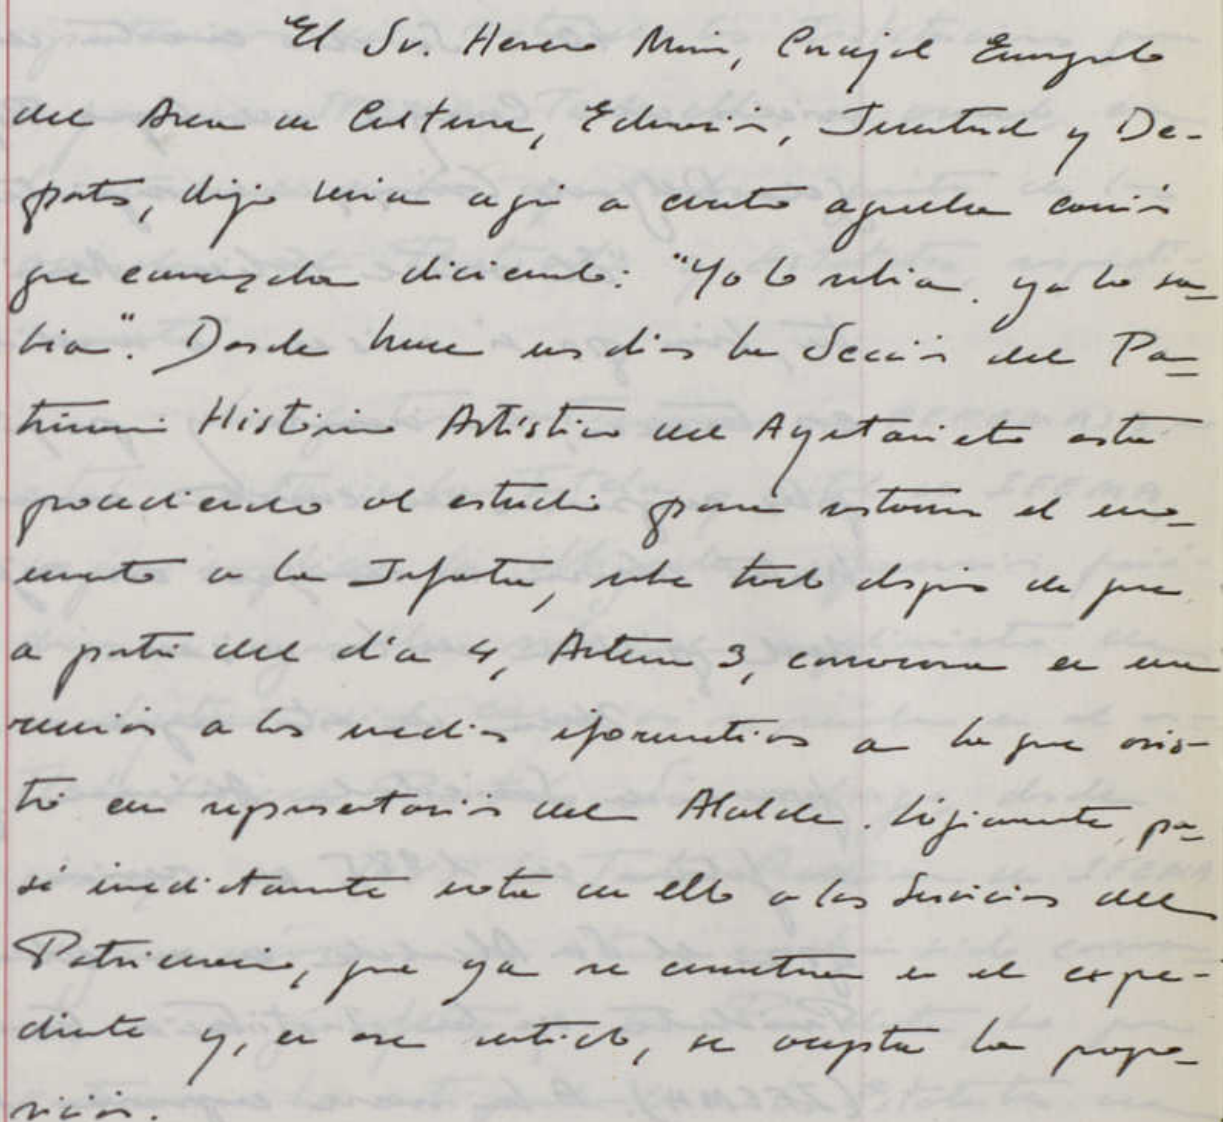 El Sr. Herrero Mira, Concejal Encargado
del Area de Cultura, Educación, Juventud y De-
portes, dijo venía aquí a cuento aquella canción
que comenzaba diciendo: "Yo lo sabía, ya lo sa-
bía". Desde hace unos días la Sección del Pa-
trimonio Histórico Artístico del Ayuntamiento está
procediendo al estudio para restaurar el mo-
numento a la Infanta, sobre todo después de que
a partir del día 4, Antena 3, convocara en una
reunión a los medios informativos a la que asis-
tió en representación del Alcalde. Lógicamente, pa-
sé inmediatamente nota de ello a los Servicios del
Patrimonio, que ya se encuentran en el expe-
diente y, en ese sentido, se acepta la propo-
sición.